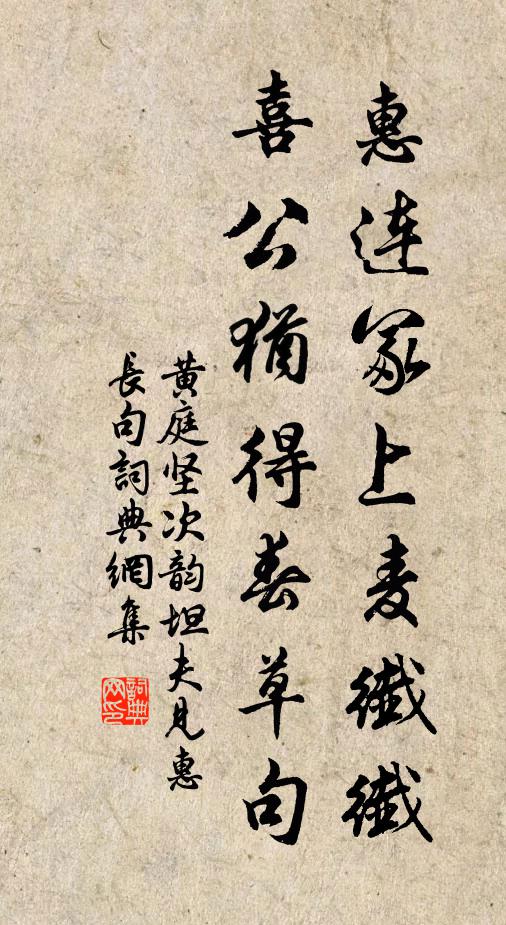 惠连冢上麦纖纖
喜公猶得春草句
黄庭坚次韵坦夫見惠
長句詞典網集
詞典網印